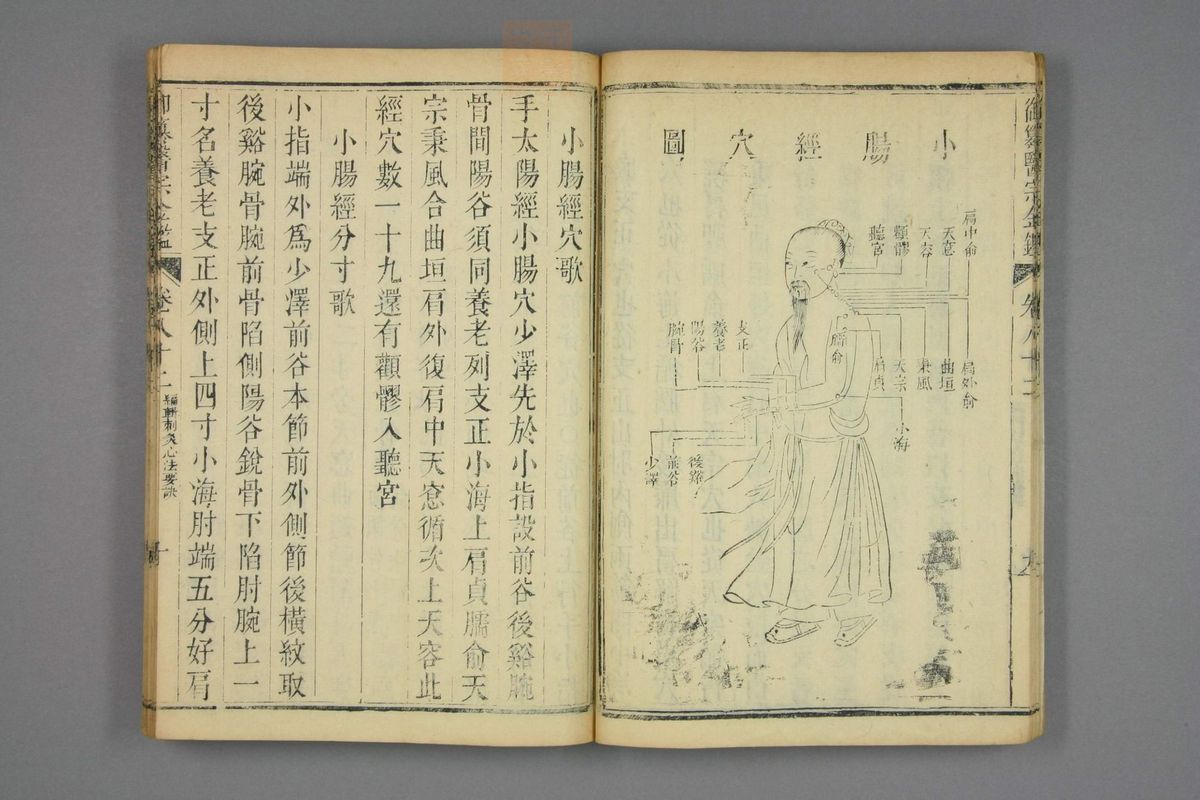 御纂醫宗金鑑
卷八十二
九
小腸經穴圖
肩中俞
天窻
天容
顴髎
聽宮
肩外俞
曲垣
秉風
天宗
肩貞
臑俞
小海
支正
養老
陽谷
腕骨
後谿
前谷
少澤
小腸經穴歌
手太陽經小腸穴少澤先於小指設前谷後谿腕
骨間陽谷須同養老列支正小海上肩貞臑俞天
宗秉風合曲垣肩外復肩中天窻循次上天容此
經穴數一十九還有顴髎入聽宮
小腸經分寸歌
小指端外爲少澤前谷本節前外側節後橫紋取
後谿腕骨腕前骨陷側陽谷銳骨下陷肘腕上一
寸名養老支正外側上四寸小海肘端五分好肩
卷八十二
編輯刺灸心法要訣
十